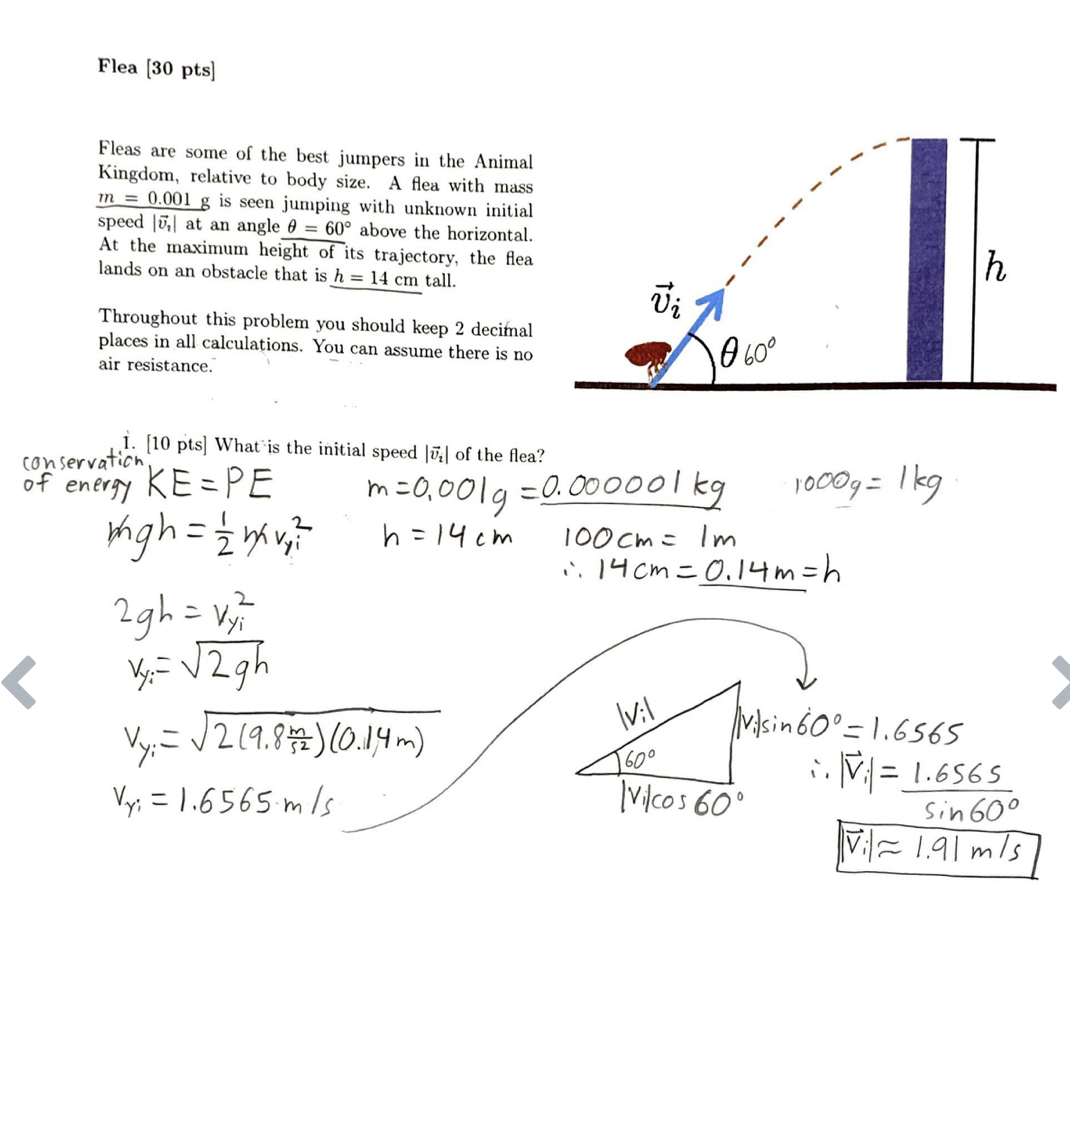 Flea [30 pts]
Fleas are some of the best jumpers in the Animal
Kingdom, relative to body size. A flea with mass
m = 0.001 g is seen jumping with unknown initial
speed |v⃗ᵢ| at an angle θ = 60° above the horizontal.
At the maximum height of its trajectory, the flea
lands on an obstacle that is h = 14 cm tall.
Throughout this problem you should keep 2 decimal
places in all calculations. You can assume there is no
air resistance.
v⃗ᵢ
θ 60°
h
1. [10 pts] What is the initial speed |v⃗ᵢ| of the flea?
conservation
of energy KE = PE
m = 0.001g = 0.000001 kg
1000g = 1kg
mgh = ½ m vyi²
h = 14 cm
100cm = 1m
∴ 14cm = 0.14m = h
2gh = vyi²
vyi = √2gh
vyi = √2(9.8 m/s²)(0.14m)
vyi = 1.6565 m/s
|vi|
60°
|vi|cos 60°
|vi|sin60° = 1.6565
∴ |v⃗i| = 1.6565 / sin60°
|v⃗i| ≈ 1.91 m/s